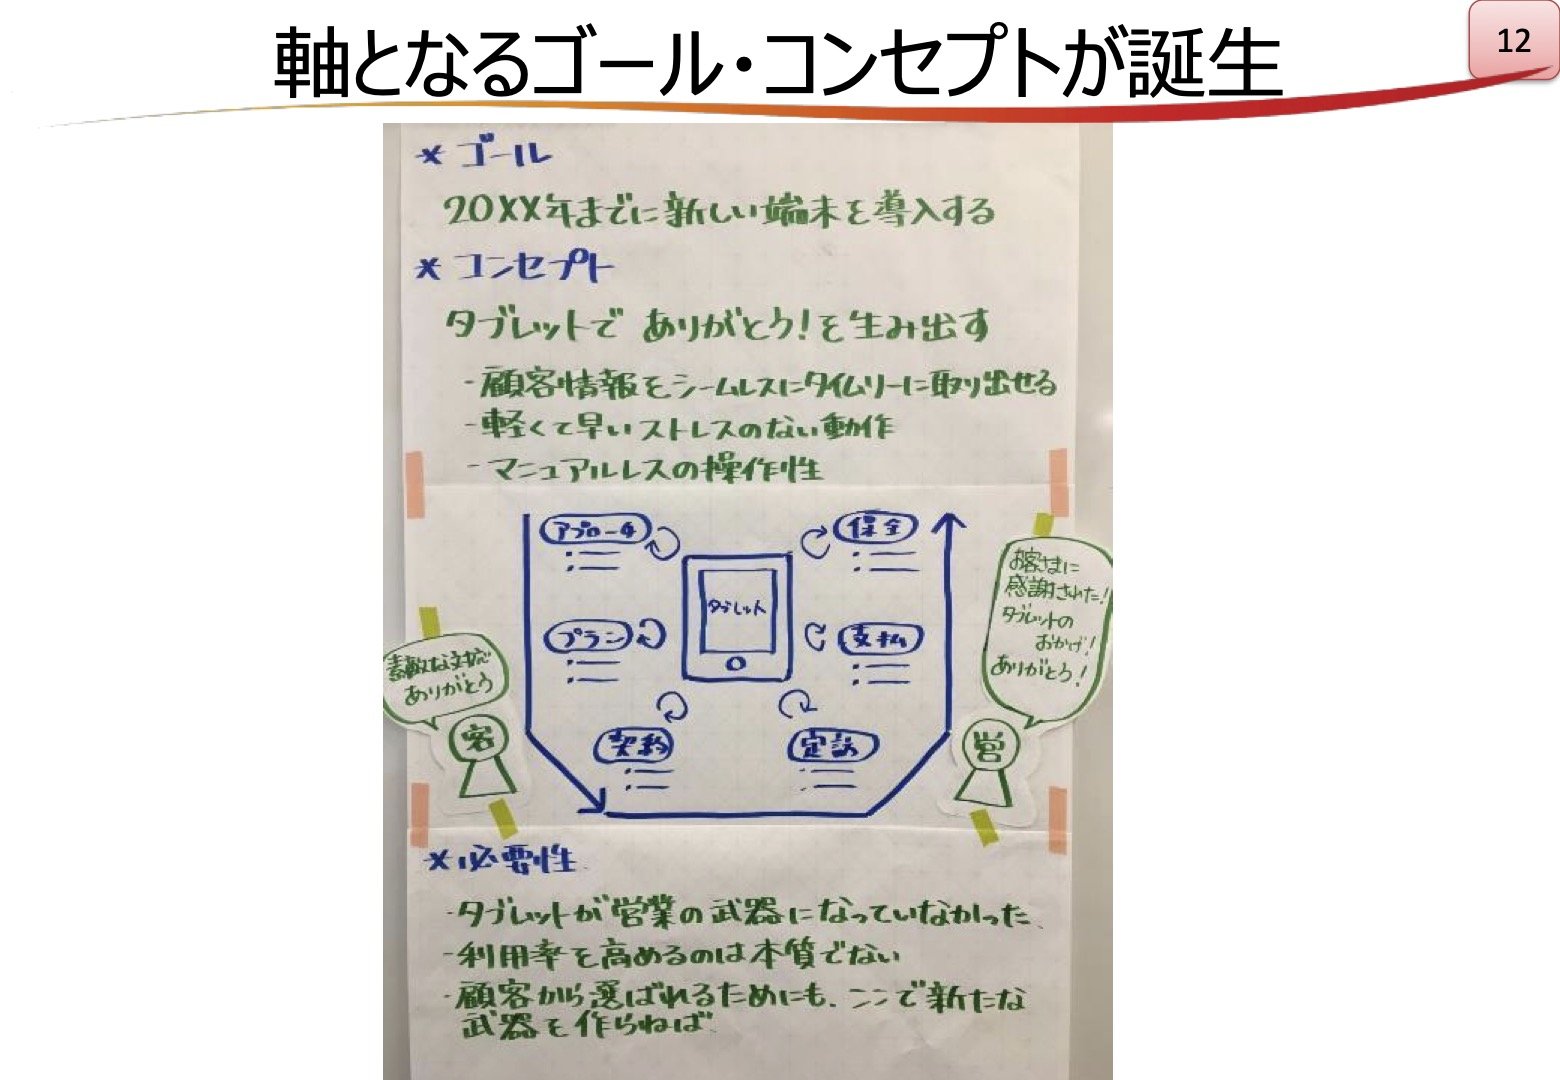 軸となるゴール・コンセプトが誕生
12
* ゴール
20XX年までに新しい端末を導入する
* コンセプト
タブレットで ありがとう!を生み出す
- 顧客情報をシームレスにタイムリーに取り出せる
- 軽くて早いストレスのない動作
- マニュアルレスの操作性
アプローチ
保全
タブレット
プラン
支払
契約
定訪
お客さまに
感謝された!
タブレットの
おかげ!
ありがとう!
素敵な対応
ありがとう
客
営
* 必要性
- タブレットが営業の武器になっていなかった、
- 利用率を高めるのは本質でない
- 顧客から選ばれるためにも、ここで新たな
武器を作らねば